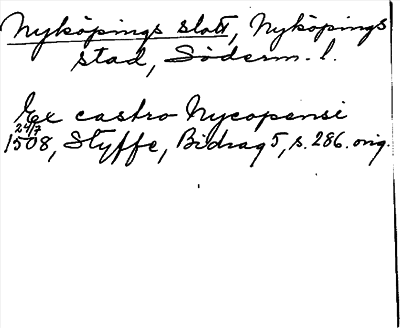 Nyköpings slott, Nyköpings
stad, Söderm. l.
Ex castro Nycopensi
24/7
1508, Styffe, Bidrag 5, s. 286. orig.